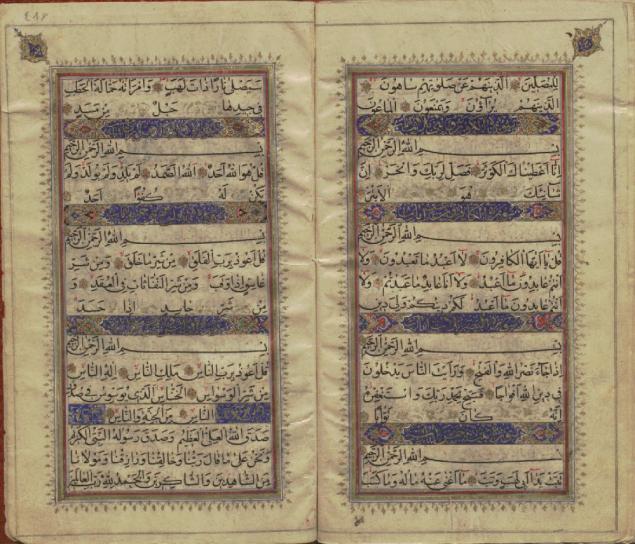 للمصلين الذين هم عن صلوتهم ساهون
الذين هم يرآؤن ويمنعون الماعون
بسم الله الرحمن الرحيم
انا اعطيناك الكوثر فصل لربك وانحر ان
شانئك هو الابتر
بسم الله الرحمن الرحيم
قل يا ايها الكافرون لا اعبد ما تعبدون ولا
انتم عابدون ما اعبد ولا انا عابد ما عبدتم ولا
انتم عابدون ما اعبد لكم دينكم ولى دين
بسم الله الرحمن الرحيم
اذا جاء نصر الله والفتح ورايت الناس يدخلون
فى دين الله افواجا فسبح بحمد ربك واستغفره
انه كان توابا
بسم الله الرحمن الرحيم
تبت يدا ابى لهب وتب ما اغنى عنه ماله وما كسب
سيصلى نارا ذات لهب وامراته حمالة الحطب
فى جيدها حبل من مسد
بسم الله الرحمن الرحيم
قل هو الله احد الله الصمد لم يلد ولم يولد ولم
يكن له كفوا احد
بسم الله الرحمن الرحيم
قل اعوذ برب الفلق من شر ما خلق ومن شر
غاسق اذا وقب ومن شر النفاثات فى العقد و
من شر حاسد اذا حسد
بسم الله الرحمن الرحيم
قل اعوذ برب الناس ملك الناس اله الناس
من شر الوسواس الخناس الذى يوسوس فى صدور
الناس من الجنة والناس
صدق الله العلى العظيم وصدق رسوله النبى الكريم
ونحن على ما قال ربنا وخالقنا ورازقنا ومولانا
من الشاهدين والشاكرين والحمد لله رب العالمين